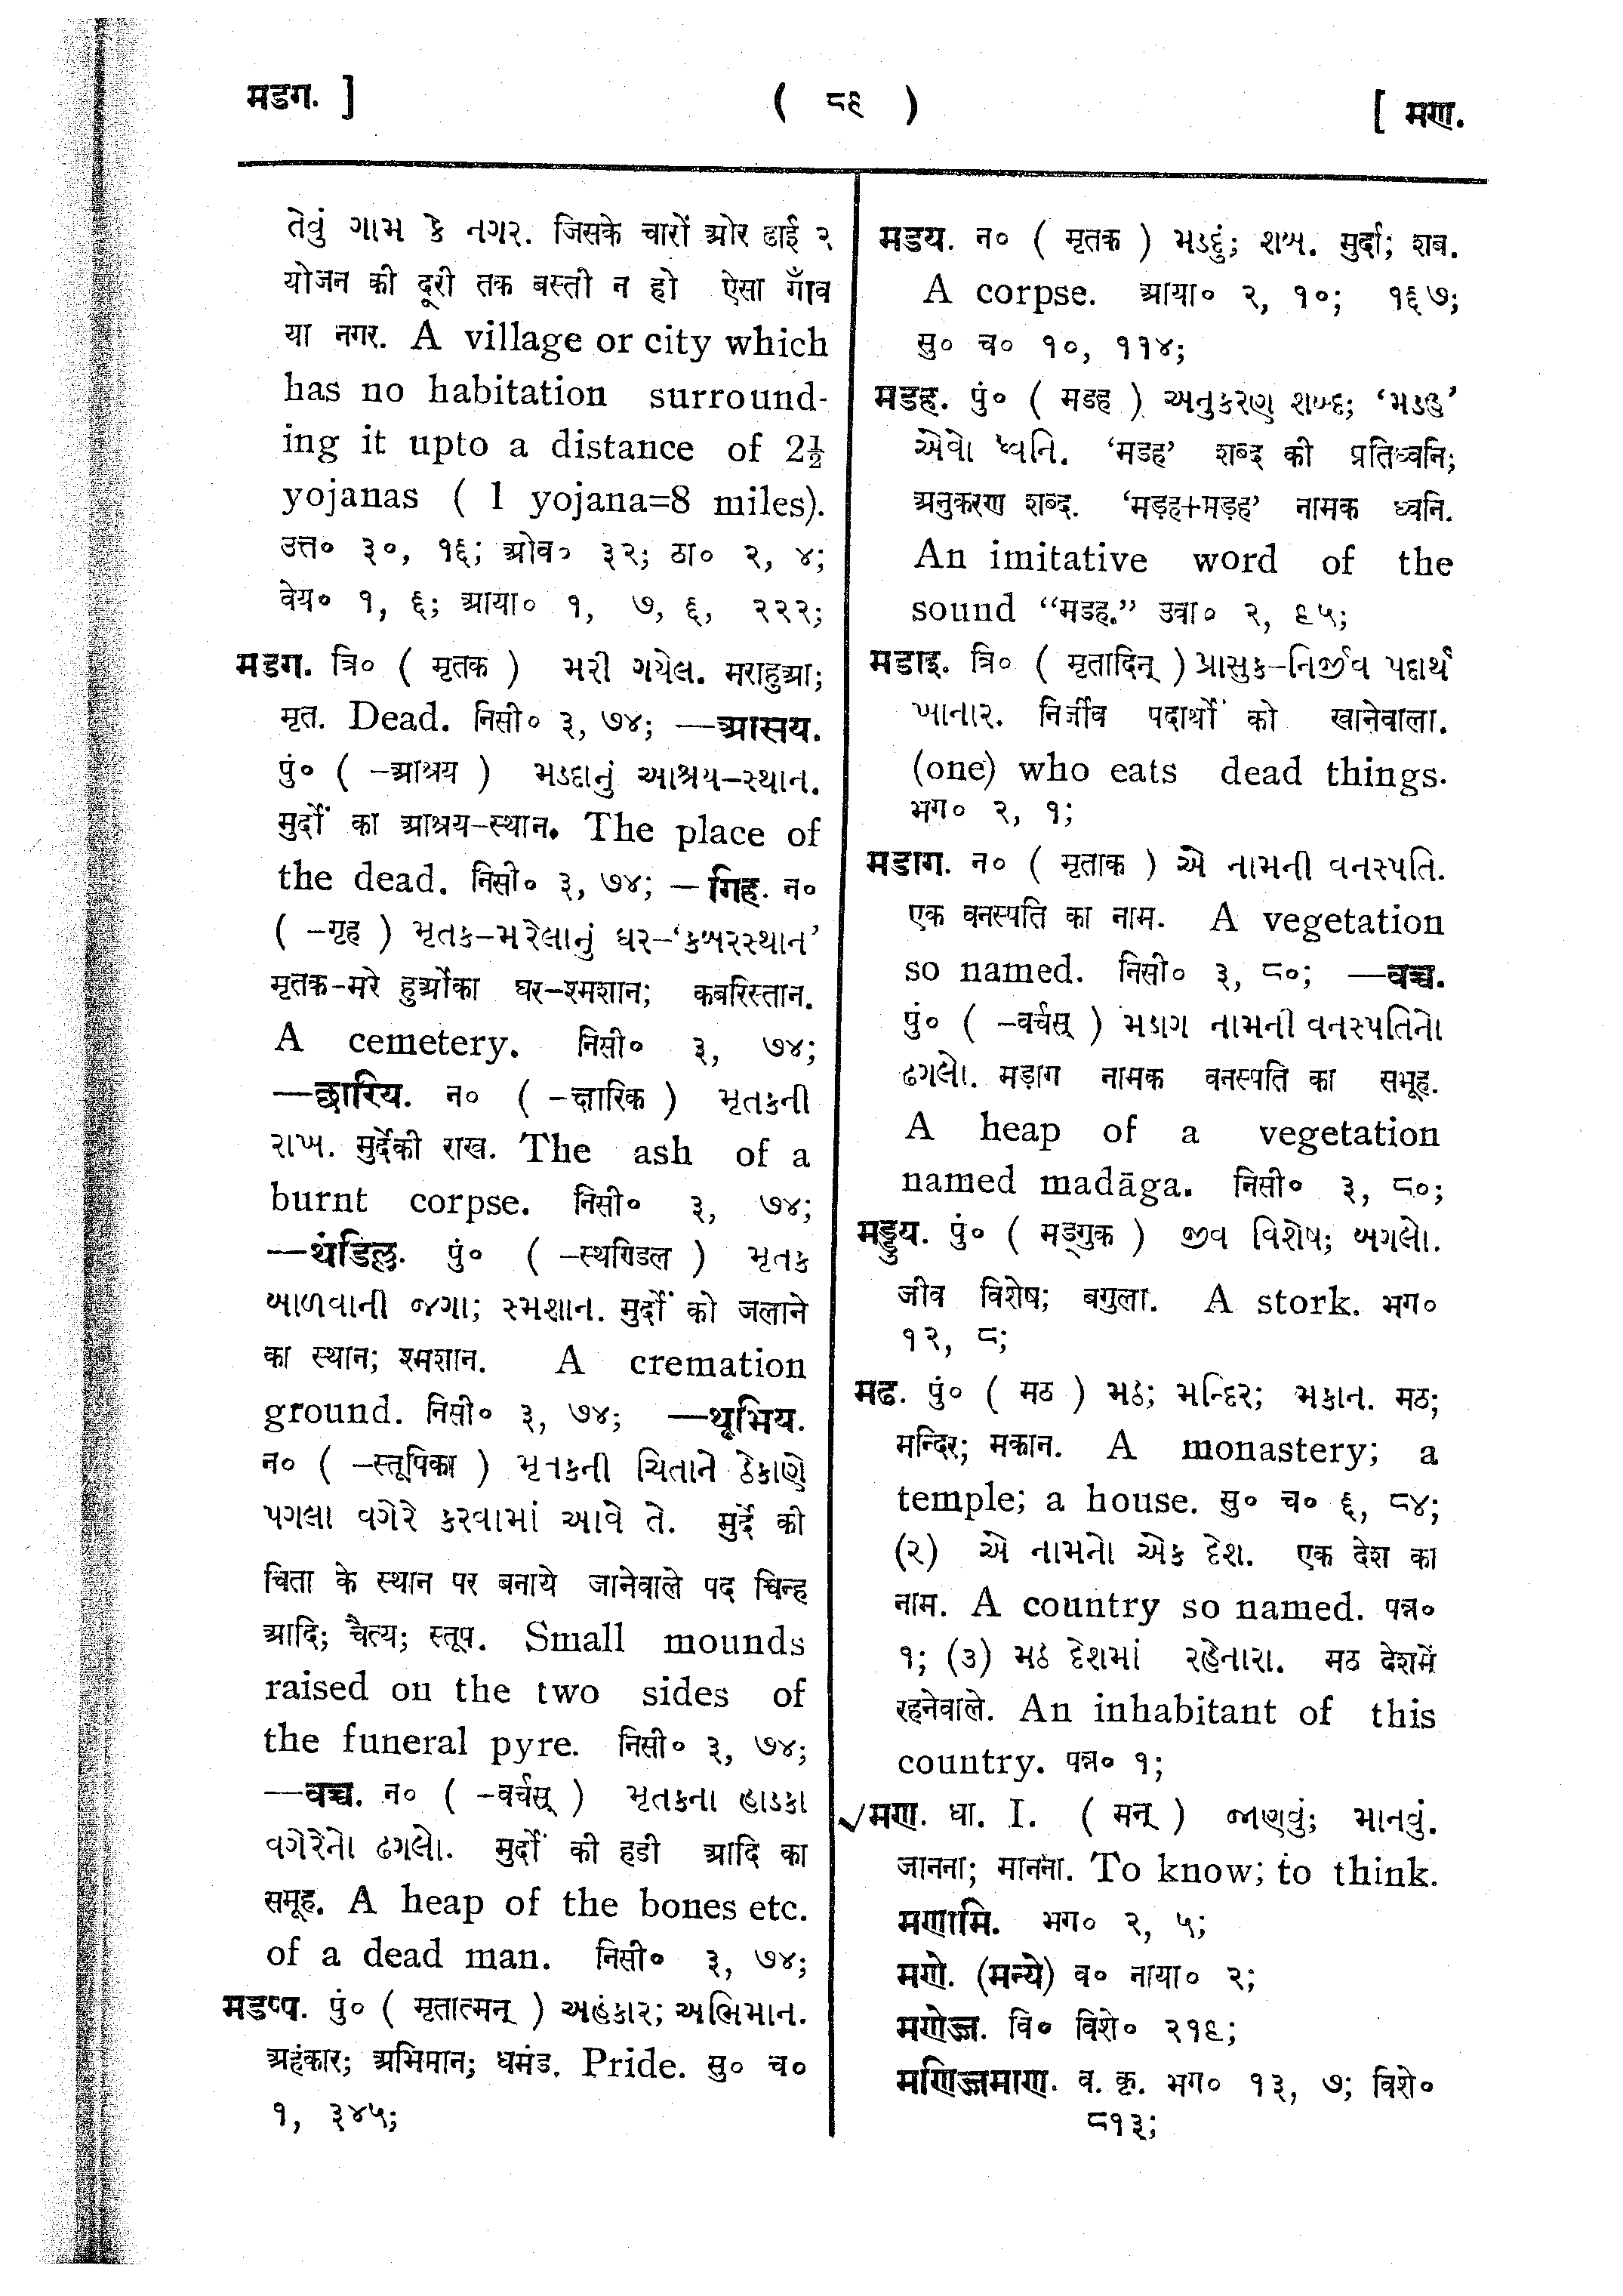 मडग. ]
( ८९ )
[ मण.
તેવું ગામ કે નગર. जिसके चारों ओर ढाई २
योजन की दूरी तक बस्ती न हो ऐसा गाँव
या नगर. A village or city which
has no habitation surround-
ing it upto a distance of 2½
yojanas ( 1 yojana=8 miles).
उत्त० ३०, १६; ओव० ३२; ठा० २, ४;
वेय० १, ६; आया० १, ७, ६, २२२;
मडग. त्रि० ( मृतक ) મરી ગયેલ. मराहुआ;
मृत. Dead. निसी० ३, ७४; —आसय.
पुं० ( -आश्रय ) મડદાનું આશ્રય-સ્થાન.
मुर्दों का आश्रय-स्थान. The place of
the dead. निसी० ३, ७४; —गिह. न०
( -गृह ) મૃતક-મરેલાનું ઘર-‘કબરસ્થાન’
मृतक-मरे हुओंका घर-श्मशान; कबरिस्तान.
A cemetery. निसी० ३, ७४;
—छारिय. न० ( -क्षारिक ) મૃતકની
રાખ. मुर्देकी राख. The ash of a
burnt corpse. निसी० ३, ७४;
—थंडिल्ल. पुं० ( -स्थण्डिल ) મૃતક
બાળવાની જગા; સ્મશાન. मुर्दों को जलाने
का स्थान; श्मशान. A cremation
ground. निसी० ३, ७४; —थूभिय.
न० ( -स्तूपिका ) મૃતકની ચિતાને ઠેકાણે
પગલા વગેરે કરવામાં આવે તે. मुर्दे की
चिता के स्थान पर बनाये जानेवाले पद चिन्ह
आदि; चैत्य; स्तूप. Small mounds
raised on the two sides of
the funeral pyre. निसी० ३, ७४;
—वच्च. न० ( -वर्चस् ) મૃતકના હાડકા
વગેરેનો ઢગલો. मुर्दों की हडी आदि का
समूह. A heap of the bones etc.
of a dead man. निसी० ३, ७४;
मडप्प. पुं० ( मृतात्मन् ) અહંકાર; અભિમાન.
अहंकार; अभिमान; घमंड. Pride. सु० च०
१, ३४५;
मडय. न० ( मृतक ) મડદું; શબ. मुर्दा; शब.
A corpse. आया० २, १०; १६७;
सु० च० १०, ११४;
मडह. पुं० ( मडह ) અનુકરણ શબ્દ; ‘મડહ’
એવો ધ્વનિ. ‘मडह’ शब्द की प्रतिध्वनि;
अनुकरण शब्द. ‘मड़ह+मड़ह’ नामक ध्वनि.
An imitative word of the
sound “मडह.” उवा० २, ९५;
मडाइ. त्रि० ( मृतादिन् ) પ્રાસુક-નિર્જીવ પદાર્થ
ખાનાર. निर्जीव पदार्थों को खानेवाला.
(one) who eats dead things.
भग० २, १;
मडाग. न० ( मृताक ) એ નામની વનસ્પતિ.
एक वनस्पति का नाम. A vegetation
so named. निसी० ३, ८०; —वच्च.
पुं० ( -वर्चस् ) મડાગ નામની વનસ્પતિનો
ઢગલો. मड़ाग नामक वनस्पति का समूह.
A heap of a vegetation
named madāga. निसी० ३, ८०;
मड्डुय. पुं० ( मड्गुक ) જીવ વિશેષ; બગલો.
जीव विशेष; बगुला. A stork. भग०
१२, ८;
मढ. पुं० ( मठ ) મઠ; મન્દિર; મકાન. मठ;
मन्दिर; मकान. A monastery; a
temple; a house. सु० च० ६, ८४;
(૨) એ નામનો એક દેશ. एक देश का
नाम. A country so named. पन्न०
१; (૩) મઠ દેશમાં રહેનારા. मठ देशमें
रहनेवाले. An inhabitant of this
country. पन्न० १;
√मण. धा. I. ( मन् ) જાણવું; માનવું.
जानना; मानना. To know; to think.
मणामि. भग० २, ५;
मणे. (मन्ये) व० नाया० २;
मणेज्ज. वि० विशे० २१९;
मणिज्जमाण. व. कृ. भग० १३, ७; विशे०
८१३;